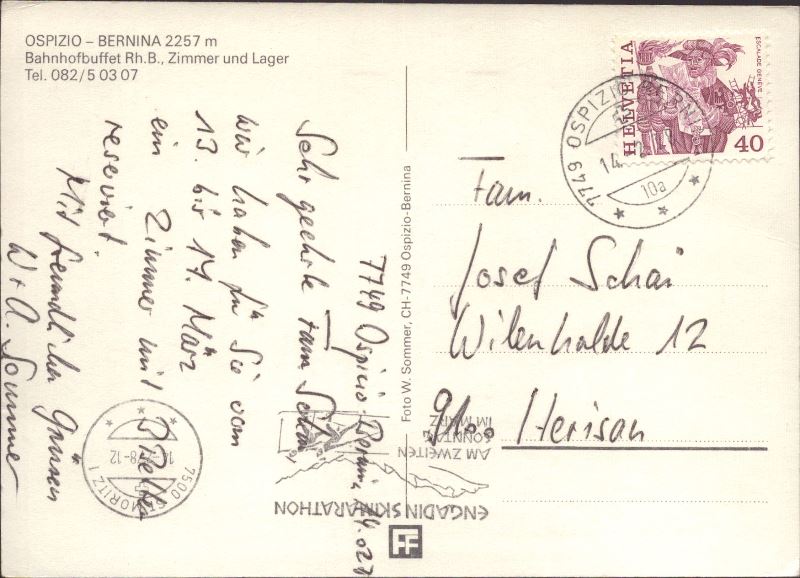 OSPIZIO – BERNINA 2257 m
Bahnhofbuffet Rh.B., Zimmer und Lager
Tel. 082/5 03 07
7749 Ospizio Bernina, 14.02.7
Sehr geehrte Fam Schai
Wir haben für Sie vom
13. bis 17. März
ein Zimmer mit 3 Betten
reserviert.
Mit freundlichen Grüssen
W + A. Sommer
Foto W. Sommer, CH-7749 Ospizio-Bernina
HELVETIA
ESCALADE GENÈVE
40
7749 OSPIZIO BERNINA
14.
10a
Fam.
Josef Schai
Wilenhalde 12
9100 Herisau
AM ZWEITEN
SONNTAG
IM MÄRZ
ENGADIN SKIMARATHON
7500 ST. MORITZ 1
78-12
FF